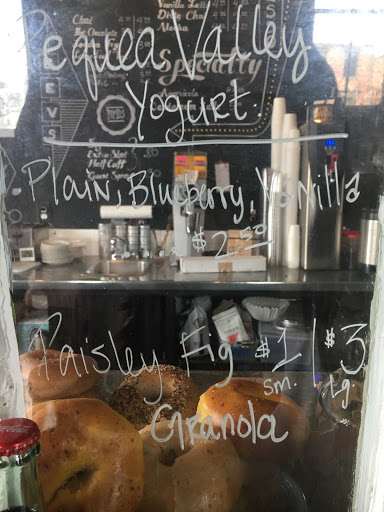 Pequea Valley
Yogurt
Plain, Blueberry, Vanilla
$2.50
Paisley Fig $1 | $3
sm. Lg.
Granola
Chai
Hot Chocolate
Vanilla Latte
Dirty Chai
Specialty
Americano
Extra Shot
Half Caff